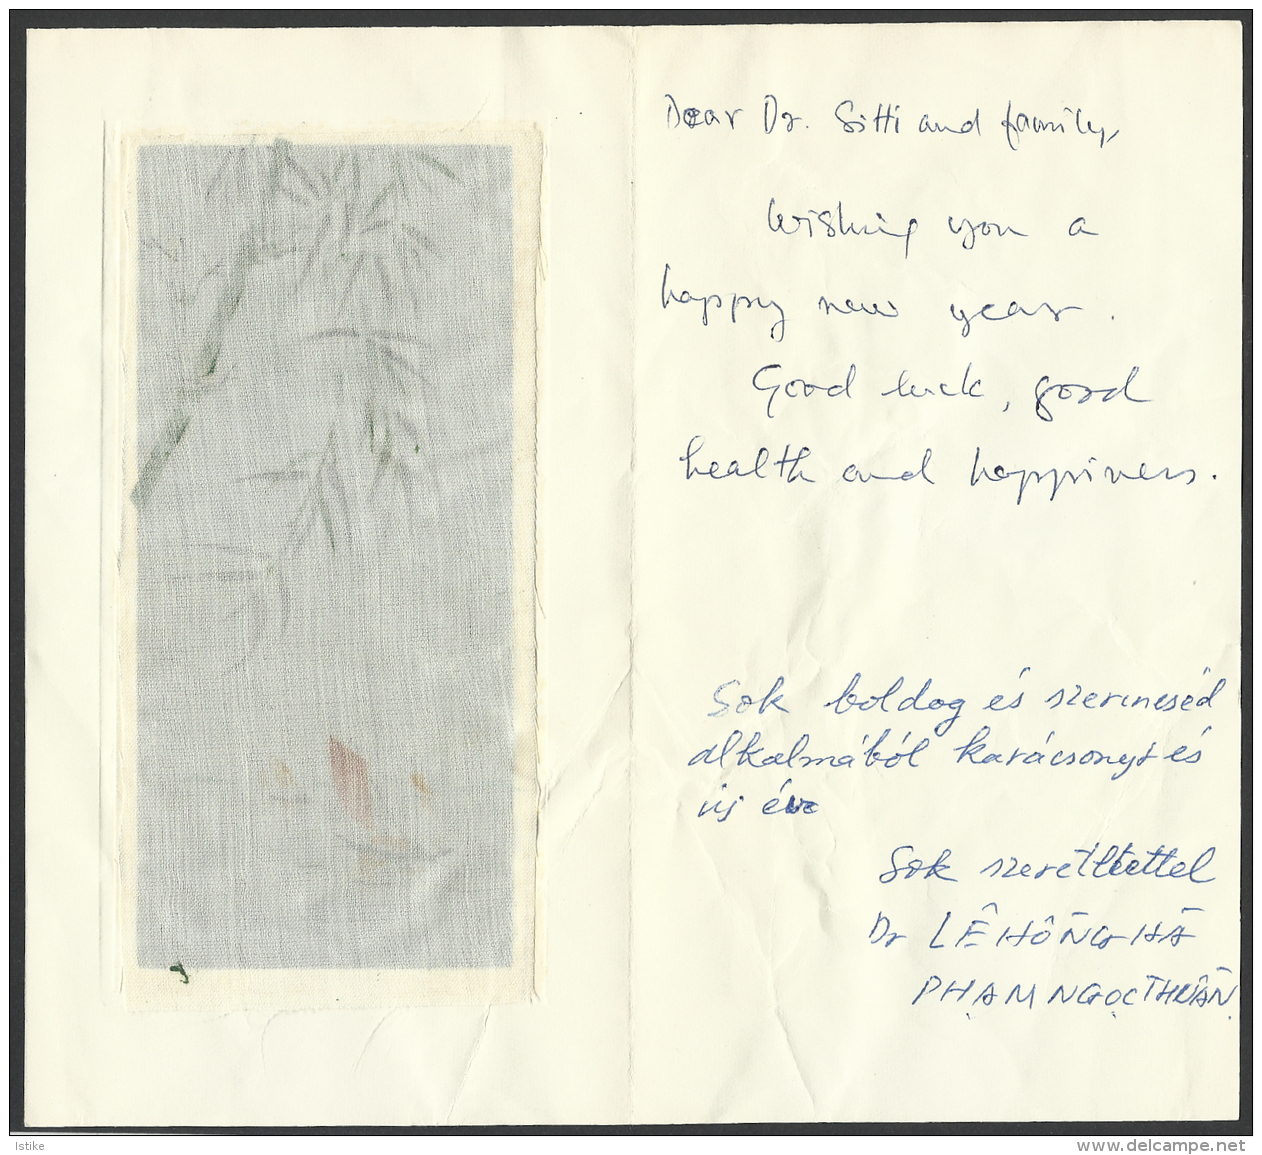 Dear Dr. Sitti and family,
Wishing you a
happy new year.
Good luck, good
health and happiness.
Sok boldog és szerincséd
alkalmából karácsonyi és
új éve
Sok szeretlettel
Dr LÊ HỒNG HÀ
PHẠM NGỌC THUẦN
Istike
www.delcampe.net